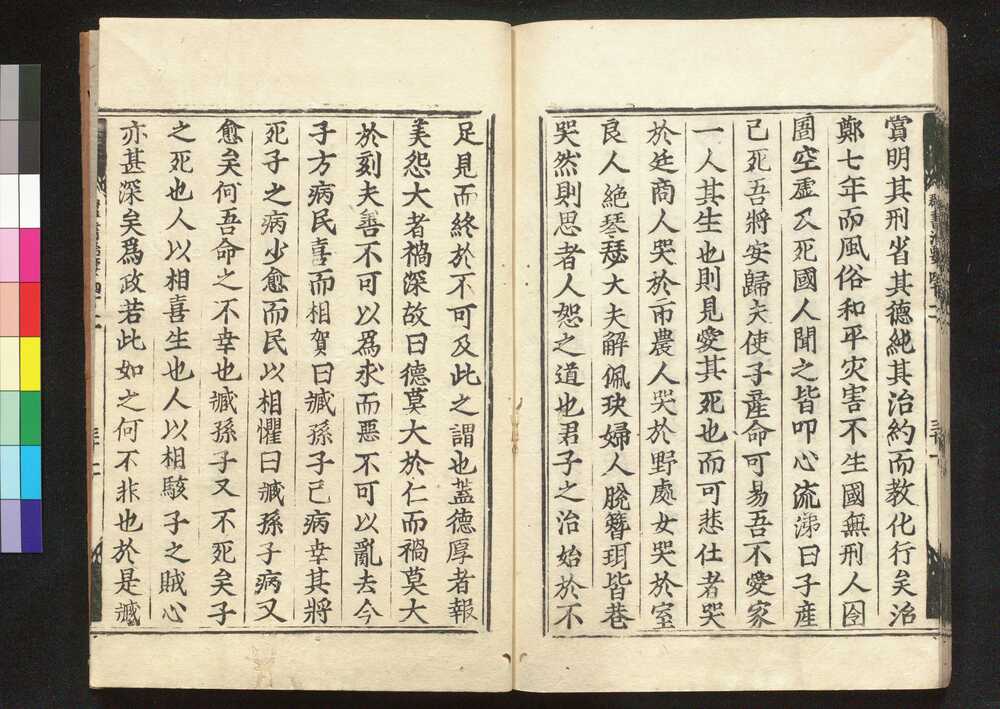 賞明其刑省其德純其治約而教化行矣治
鄭七年而風俗和平灾害不生國無刑人囹
圄空虛及死國人聞之皆叩心流涕曰子產
已死吾將安歸夫使子產命可易吾不愛家
一人其生也則見愛其死也而可悲仕者哭
於廷商人哭於市農人哭於野處女哭於室
良人絶琴瑟大夫解佩玦婦人脫簪珥皆巷
哭然則思者人恕之道也君子之治始於不
足見而終於不可及此之謂也蓋德厚者報
美怨大者禍深故曰德莫大於仁而禍莫大
於刻夫善不可以爲求而惡不可以亂去今
子方病民喜而相賀曰臧孫子已病幸其將
死子之病少愈而民以相懼曰臧孫子病又
愈矣何吾命之不幸也臧孫子又不死矣子
之死也人以相喜生也人以相駭子之賊心
亦甚深矣爲政若此如之何不非也於是臧